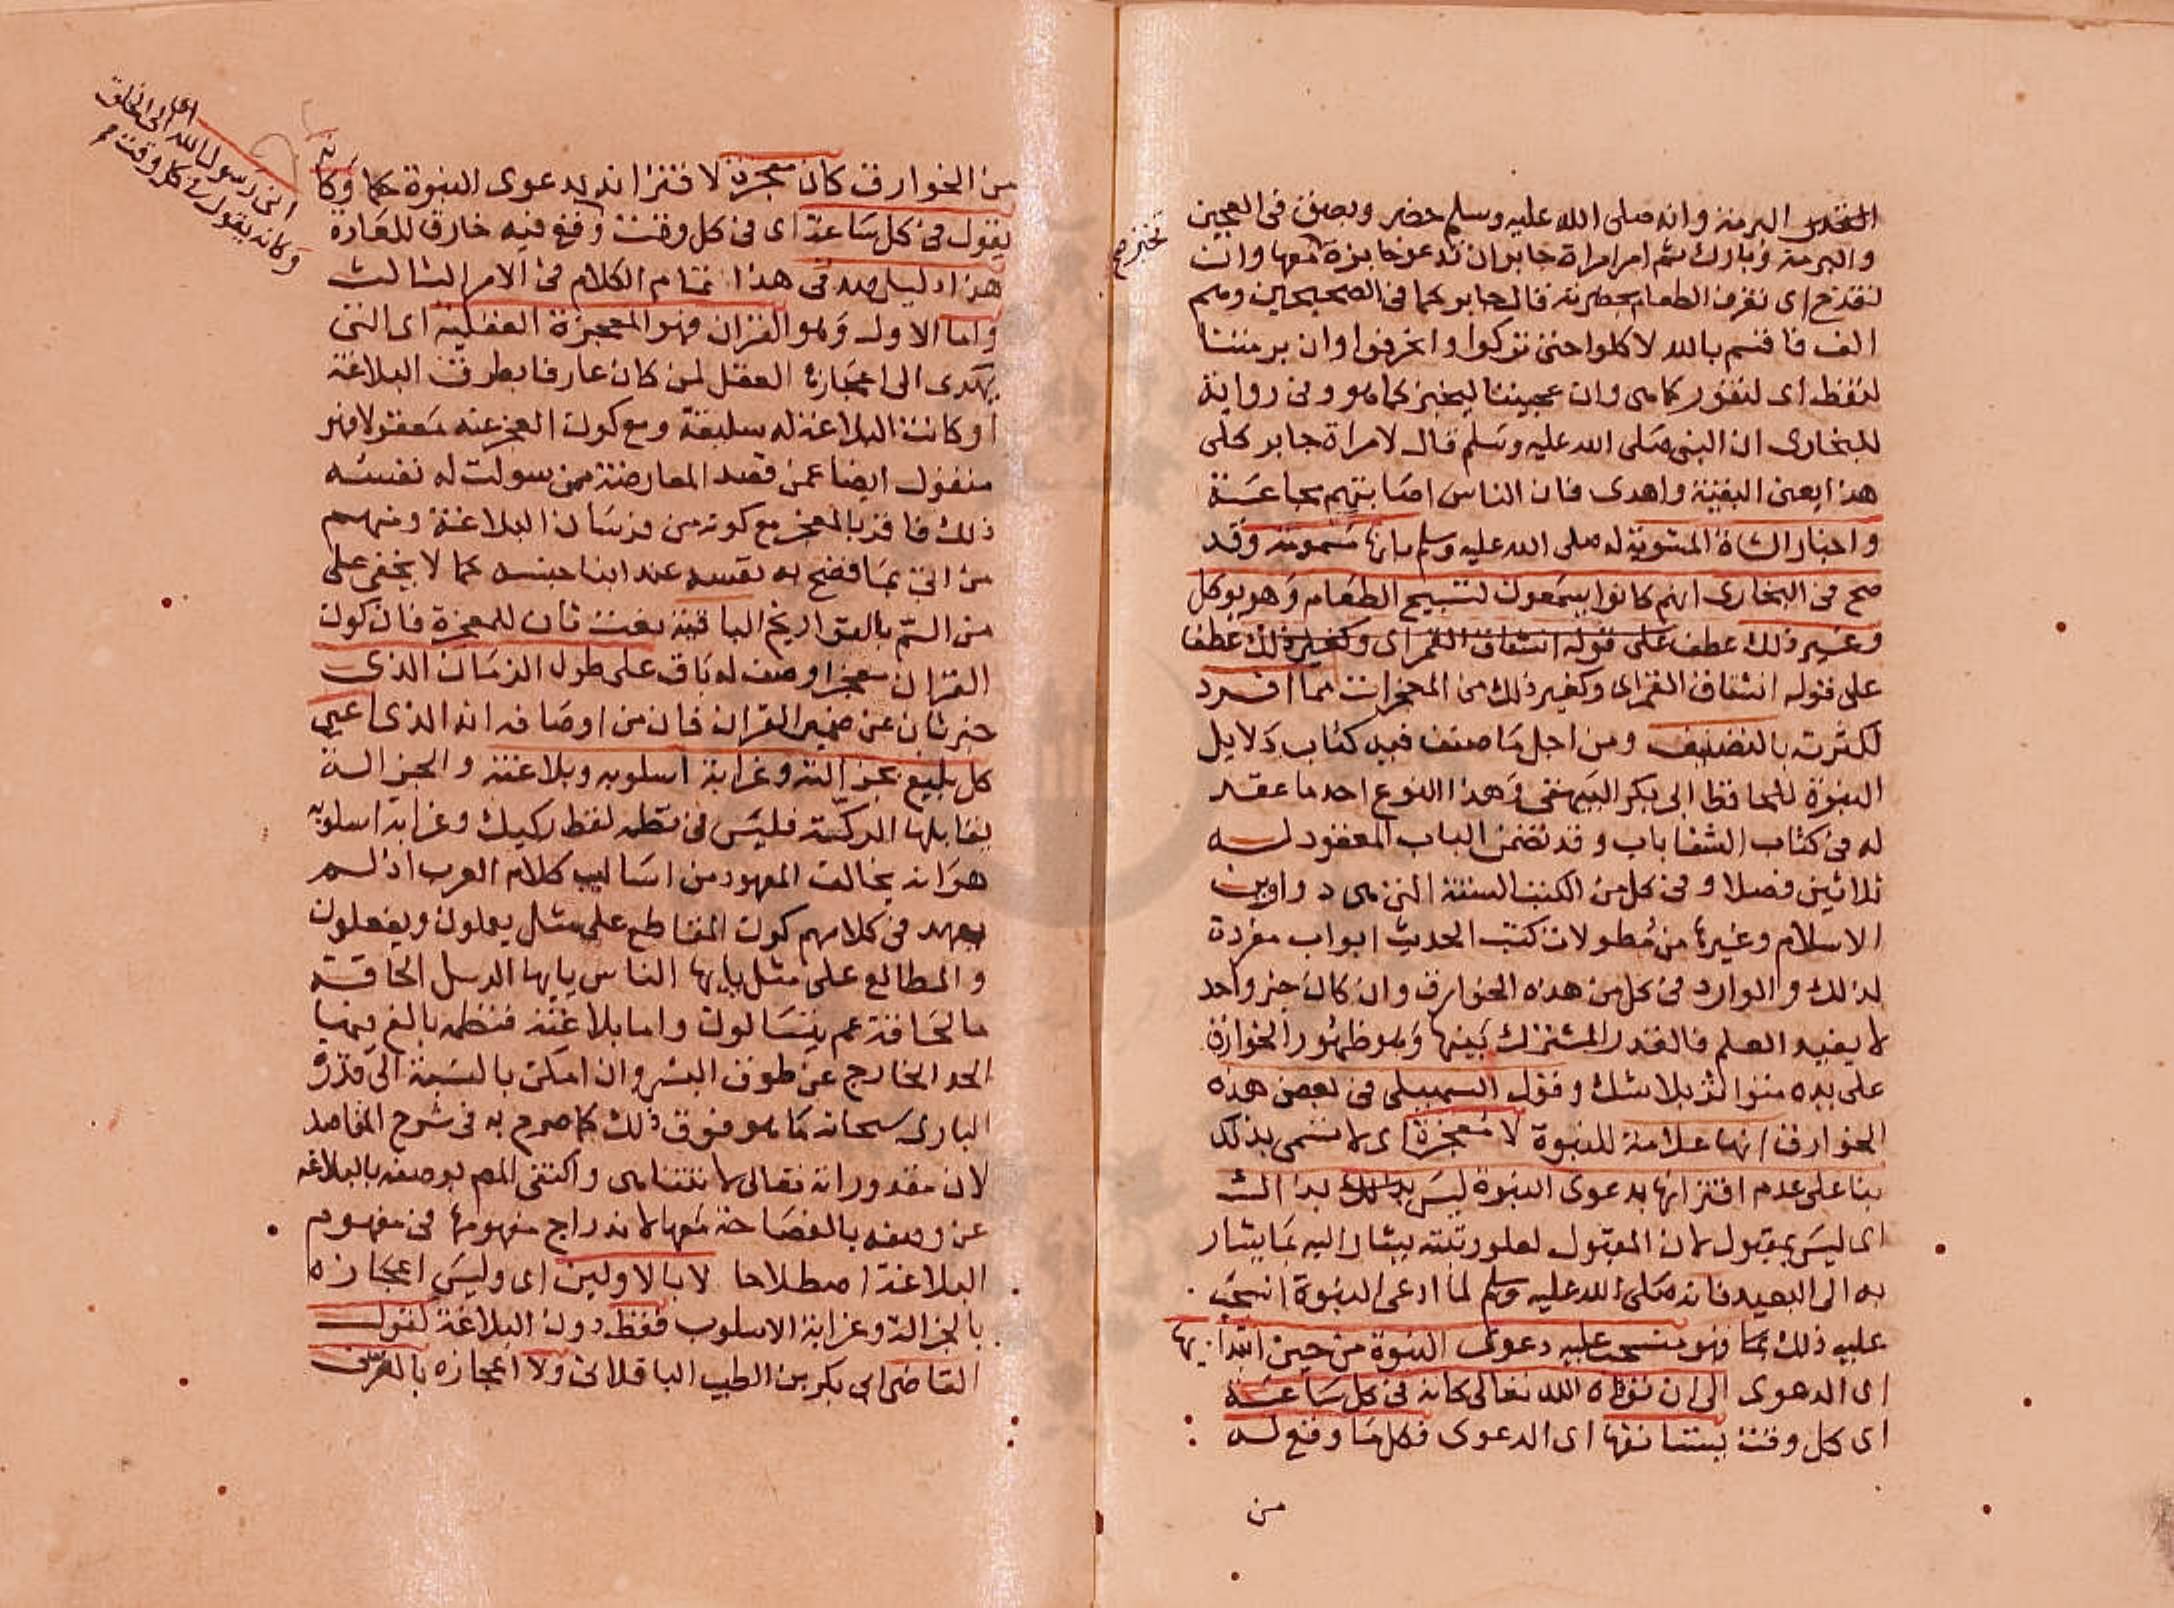 البرمة وانه صلى الله عليه وسلم حضر وبصق فى العجين
والبرمة وبارك ثم امر امراة جابر ان تدعو خابزة معها وان
تخبز صح
تقدح اى تغرف الطعام بحضرته قال جابر كما فى الصحيحين وهم
الف فاقسم بالله لاكلوا حتى تركوا وانحرفوا وان برمتنا
لتغط اى لتفور كما هى وان عجيننا ليخبز كما هو وفى رواية
للبخارى ان النبى صلى الله عليه وسلم قال لامراة جابر كلى
هذا يعنى البقية واهدى فان الناس اصابتهم مجاعة
واخبار الشاة المشوية له صلى الله عليه وسلم بانها مسمومة وقد
صح فى البخارى انهم كانوا يسمعون تسبيح الطعام وهو يوكل
وغير ذلك عطف على قوله انشقاق القمر اى وكغير ذلك عطفا
على قوله انشقاق القمر اى وكغير ذلك من المعجزات مما افرد
لكثرته بالتصنيف ومن اجل ما صنف فيه كتاب دلايل
النبوة للحافظ ابى بكر البيهقى وهذا النوع احد ما عقد
له فى كتاب الشفا باب وقد تضمن الباب المعقود له
ثلاثين فصلا وفى كل من الكتب الستة التى هى دواوين
الاسلام وغيرها من مطولات كتب الحديث ابواب مفردة
لذلك والوارد فى كل من هذه الخوارق وان كان خبر واحد
لا يفيد العلم فالقدر المشترك بينها وهو ظهور الخوارق
على يده متواتر بلا شك وقول السهيلى فى بعض هذه
الخوارق انها علامة للنبوة لا معجزة اى لا تسمى بذلك
بنا على عدم اقترانها بدعوى النبوة ليس بذاك
اى ليس بمقبول لان المقبول لعلو رتبته يشار اليه بما يشار
به الى البعيد فانه صلى الله عليه وسلم لما ادعى النبوة انسحب
عليه ذلك فهو منسحب عليه دعوى النبوة من حين ابتدا بها
اى الدعوى الى ان توفاه الله تعالى كانه فى كل ساعة
اى كل وقت يستانفها اى الدعوى فكل ما وقع له
من
من الخوارق كان معجزة لاقترانه بدعوى النبوة حكما وكانه
يقول فى كل ساعة اى فى كل وقت وقع فيه خارق للعادة
انى رسول الله الى الخلق
وكانه يقول فى كل وقت
هذا دليل صدقى هذا تمام الكلام فى الامر الثالث
واما الاول وهو القران فهو المعجزة العقلية اى التى
يهتدى الى اعجازه العقل لمن كان عارفا بطرق البلاغة
او كانت البلاغة له سليقة ومع كون العجز عنه معقولا فهو
منقول ايضا عمن قصد المعارضة ممن سولت له نفسه
ذلك فاقر بالعجز مع كونه من فرسان البلاغة ومنهم
من اتى بما افتضح به نفسه عند ابنا جنسه كما لا يخفى على
من الم بالتواريخ الباقية نعت ثان للمعجزة فان كون
القران معجزا وصف له باق على طول الزمان الذى
خبر ثان عن ضمير القران فان من اوصافه انه الذى اعيى
كل بليغ بجزالته وغرابة اسلوبه وبلاغته والجزالة
يقابلها الركة فليس فى نظمه لفظ ركيك وغرابة اسلوبه
هو انه يخالف المعهود من اساليب كلام العرب اذ لم
يعهد فى كلامهم كون المقاطع على مثل يعملون ويفعلون
والمطالع على مثل يايها الناس يايها الرسل الحاقة
ما الحاقة عم يتسالون واما بلاغته فنظمه بالغ فيها
الحد الخارج عن طوق البشر وان امكن بالنسبة الى قدرة
البارى سبحانه ما هو فوق ذلك كما صرح به فى شرح المقاصد
لان مقدوراته تعالى لا تتناهى واكتفى المص بوصفه بالبلاغة
عن وصفه بالفصاحة معها لاندراج مفهومها فى مفهوم
البلاغة اصطلاحا لا بالاولين اى وليس اعجازه
بالجزالة وغرابة الاسلوب فقط دون البلاغة كقول
القاضى ابى بكر بن الطيب الباقلانى ولا اعجازه بالصرف